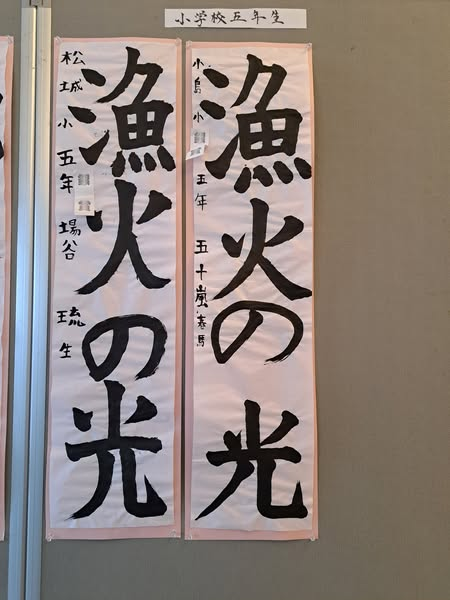 小学校五年生
漁火の光
小島小 五年 五十嵐 春馬
漁火の光
松城小 五年 場谷 琉生